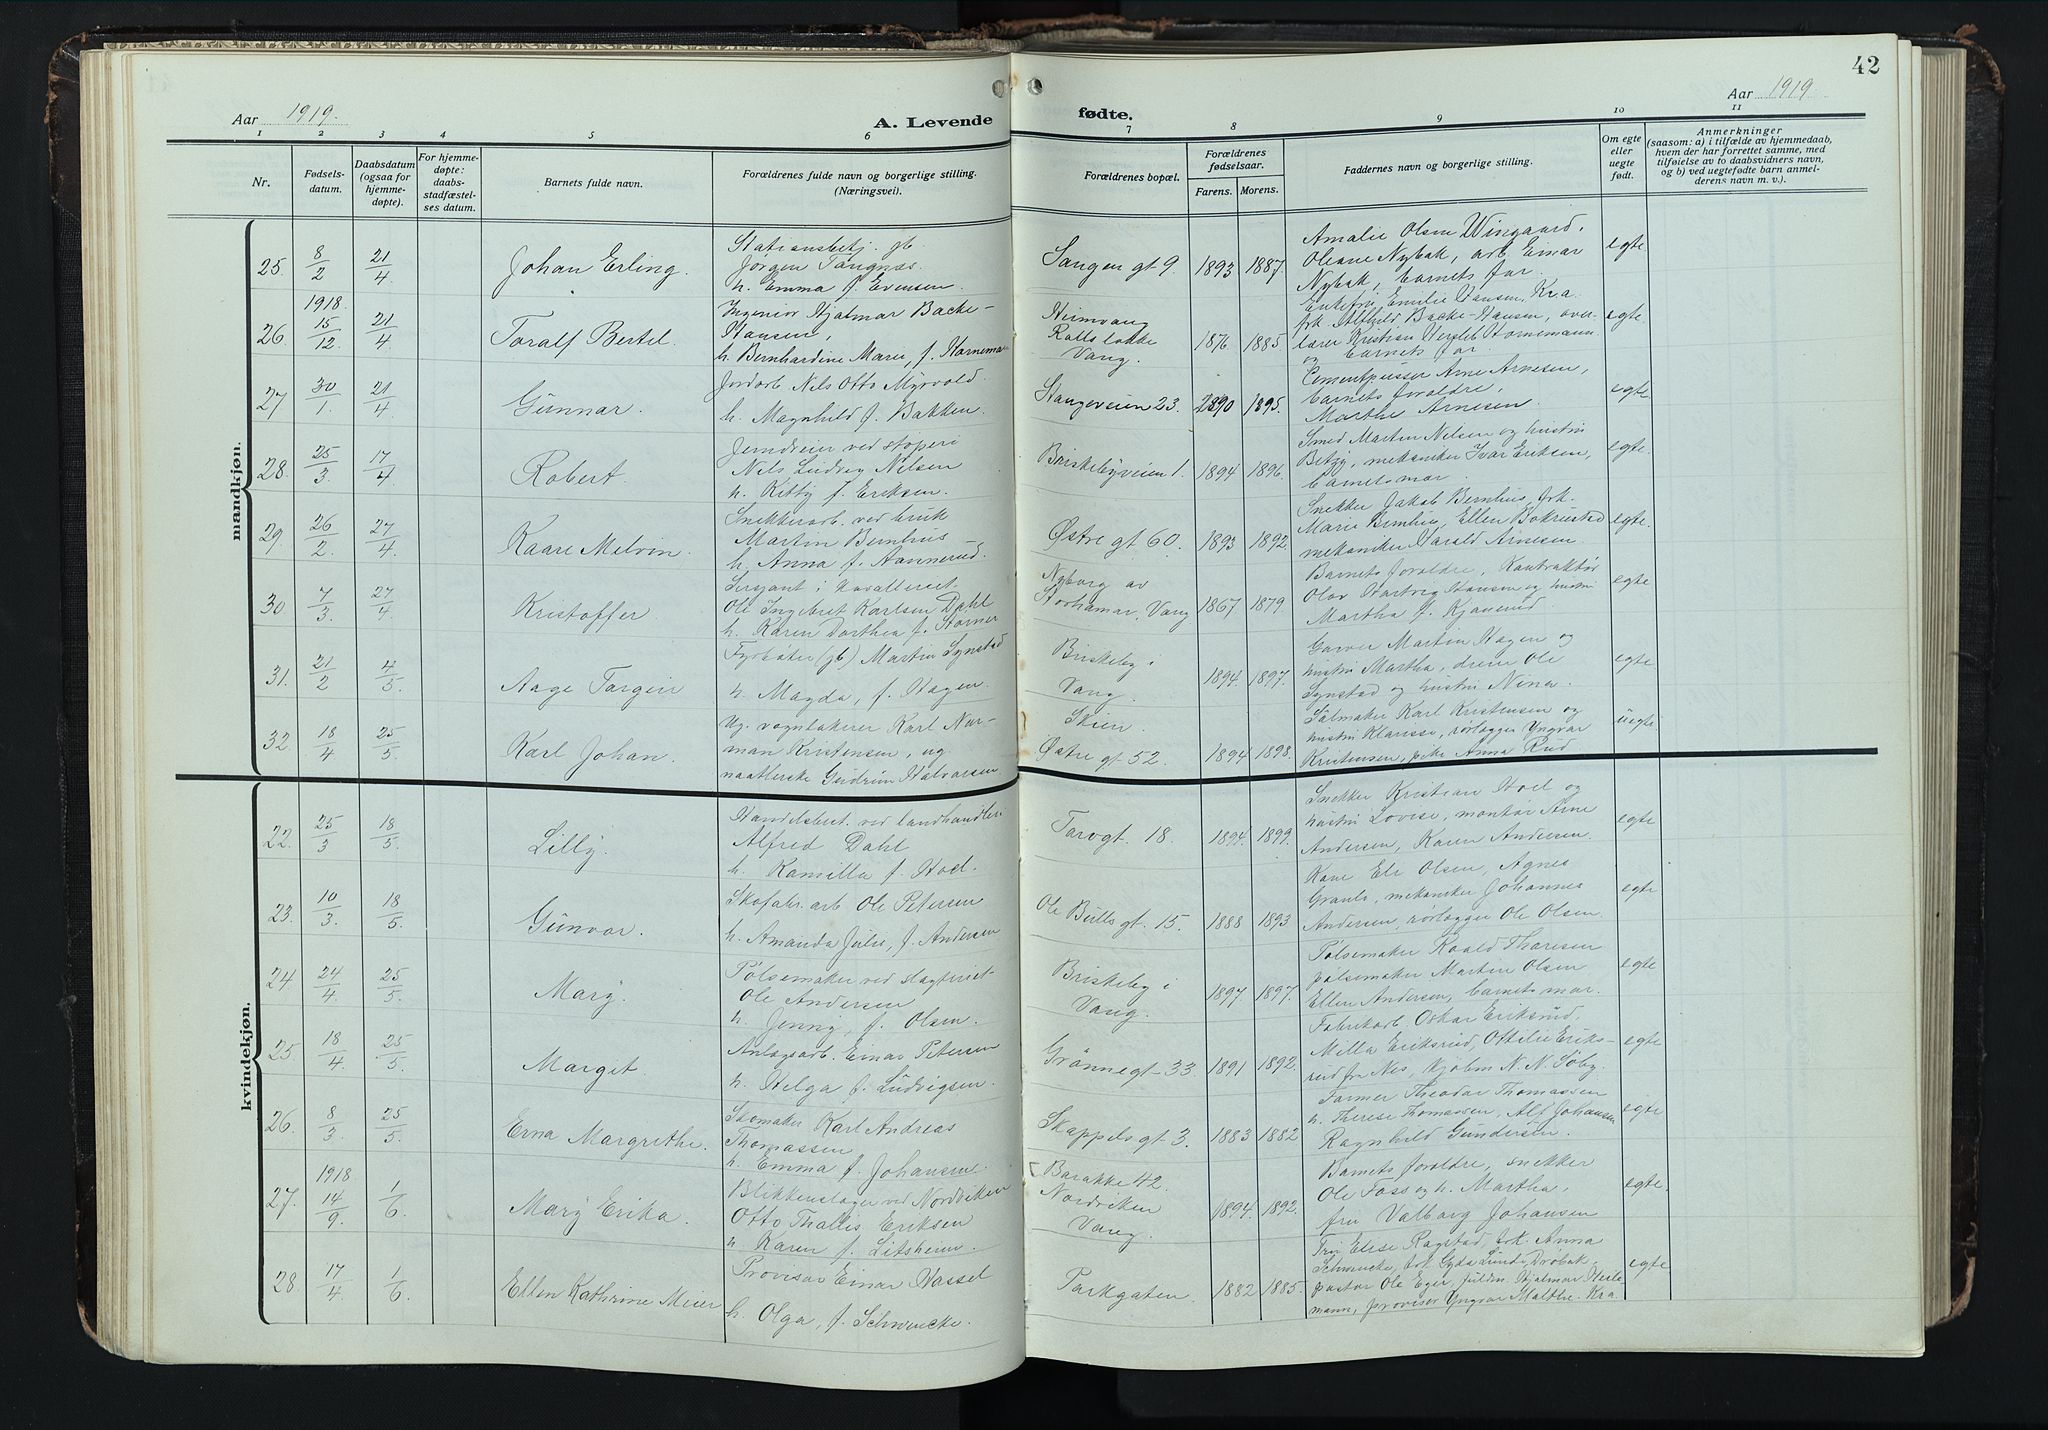 42
Aar 1919.
A. Levende
fødte.
Aar 1919
1 2 3 4 5 6 7 8 9 10 11
Nr.
Fødsels-
datum.
Daabsdatum
(ogsaa for
hjemme-
døpte).
For hjemme-
døpte:
daabs-
stadfæstel-
ses datum.
Barnets fulde navn.
Forældrenes fulde navn og borgerlige stilling.
(Næringsvei).
Forældrenes bopæl.
Forældrenes
fødselsaar.
Farens. Morens.
Faddernes navn og borgerlige stilling.
Om egte
eller
uegte
født.
Anmerkninger
(saasom: a) i tilfælde av hjemmedaab,
hvem der har forrettet samme, med
tilføielse av to daabsvidners navn,
og b) ved uegtefødte barn anmel-
derens navn m. v.).
mandkjøn.
25. 8/2 21/4 Johan Erling.
Stationsbetj. gb
Jørgen Tangnæs.
h. Emma f. Evensen.
Sangen gt 9 1893 1887.
Amalie Olsen Wingaard,
Oleane Nybak, arb. Einar
Nybak, barnets far.
egte
26. 1918 15/12. 21/4 Toralf Bertel.
Ingeniør Hjalmar Backe-
Hansen,
h. Bernhardine Marie, f. Hornema
Heimvang
Rollsløkke
Vang. 1876 1885
Enkefru Emilie Hansen, Kra.
frk. Alfhild Backe-Hansen, over-
lærer Kristian Vergeleb Hornemann
og barnets far
egte.
27 30/1. 21/4 Gunnar.
Jordarb. Nils Otto Myrvold.
h. Magnhild f. Bakken.
Stangeveien 23. 1890 1895.
Cementpusser Arne Arnesen,
barnets foreldre,
Marthe Arnesen.
egte.
28. 25/3 17/4 Robert.
Jerndreier ved støperi
Nils Ludvig Nilsen
h. Kitty f. Eriksen.
Briskebyveien 1. 1894 1896.
Smed Martin Nilsen og hustru
Betzy, mekaniker Ivar Eriksen,
barnets mor.
egte.
29. 26/2. 27/4 Kaare Melvin.
Snekkerarb. ved bruk
Martin Bernhus
h. Anna f. Aannerud.
Østre gt 60. 1893 1892
Snekker Jakob Bernhus, frk.
Marie Bernhus, Ellen Bokrustad
mekaniker Harald Arnesen.
egte.
30 7/3. 27/4 Kristoffer.
Sersjant i kavalleriet
Ole Ingebret Karlsen Dahl
h. Karen Dorthea f. Storner
Nyborg av
Storhamar, Vang 1867 1879.
Barnets foreldre, Kontraktør
Olav Hartvig Hansen og hustru
Martha f. Kjønerud
egte
31. 21/2 4/5 Aage Torgin
Fyrbøter (gb) Martin Synstad
h. Magda, f. Hagen.
Briskeby i
Vang. 1894. 1897.
Garver Martin Hagen og
hustru Martha, dreier Ole
Synstad og hustru Nina.
egte
32. 18/4 25/5. Karl Johan.
Ug. vognlakerer Karl Nor-
man Kristensen, ug.
naatlerske Gudrun Halvorsen
Skien.
Østre gt 52. 1894 1898.
Salmaker Karl Kristensen og
hustru Klarisse, rørlægger Yngvar
Kristensen, pike Anna Rud
uegte.
kvindekjøn.
22. 25/3 18/5. Lilly.
Handelsbet. ved landhandleri
Alfred Dahl
h. Kamilla f. Hoel.
Torvgt. 18. 1894. 1899.
Snekker Kristian Hoel og
hustru Lovise, montør Arne
Andersen, Karen Andersen.
egte
23. 10/3. 18/5. Gunvor.
Skofabr. arb Ole Petersen
h. Amanda Julie, f. Andersen
Ole Bulls gt. 15. 1888 1893
Kone Eli Olsen, Agnes
Granli, mekaniker Johannes
Andersen, rørlægger Ole Olsen.
egte
24 24/4. 25/5. Mary.
Pølsemaker ved slagteriet
Ole Andersen
h. Jenny, f. Olsen.
Briskeby i
Vang. 1897. 1897.
Pølsemaker Roald Thoresen
pølsemaker Martin Olsen
Ellen Andersen, barnets mor.
egte
25. 18/4. 25/5. Margit.
Anlægsarb. Einar Petersen
h. Helga f. Ludvigsen.
Grønnegt 33. 1891 1892.
Fabrikarb Oskar Eriksrud,
Milla Eriksrud, Ottilie Eriks-
rud fra Nes, Kjøbm N. N. Søby.
egte
26. 8/3. 25/5. Erna Margrethe.
Skomaker Karl Andreas
Thomassen
h. Emma f. Johansen
Skappels gt 3. 1883 1882
Former Theodor Thomassen
h. Therese Thomassen, Alf Johansen
Ragnhild Gundersen.
egte
27. 1918 14/9. 1/6. Mary Erika.
Blikkenslager ved Nordviken
Otto Thallis Eriksen
h. Karen f. Litsheim.
Barakke 42.
Nordviken
Vang. 1894. 1892.
Barnets foreldre, snekker
Ole Foss og h. Martha,
fru Valborg Johansen
egte.
28. 17/4 1/6. Ellen Kathrine Meier
Provisor Einar Hassel
h. Olga, f. Schwencke.
Parkgaten. 1882 1885.
Fru Elise Ragstad, frk. Anna
Schwencke, frk Gyda Lunde Drøbak
pastor Olé Eger, fuldm. Hjalmar Heile-
mann, provisor Yngvar Malthe. Kra
egte